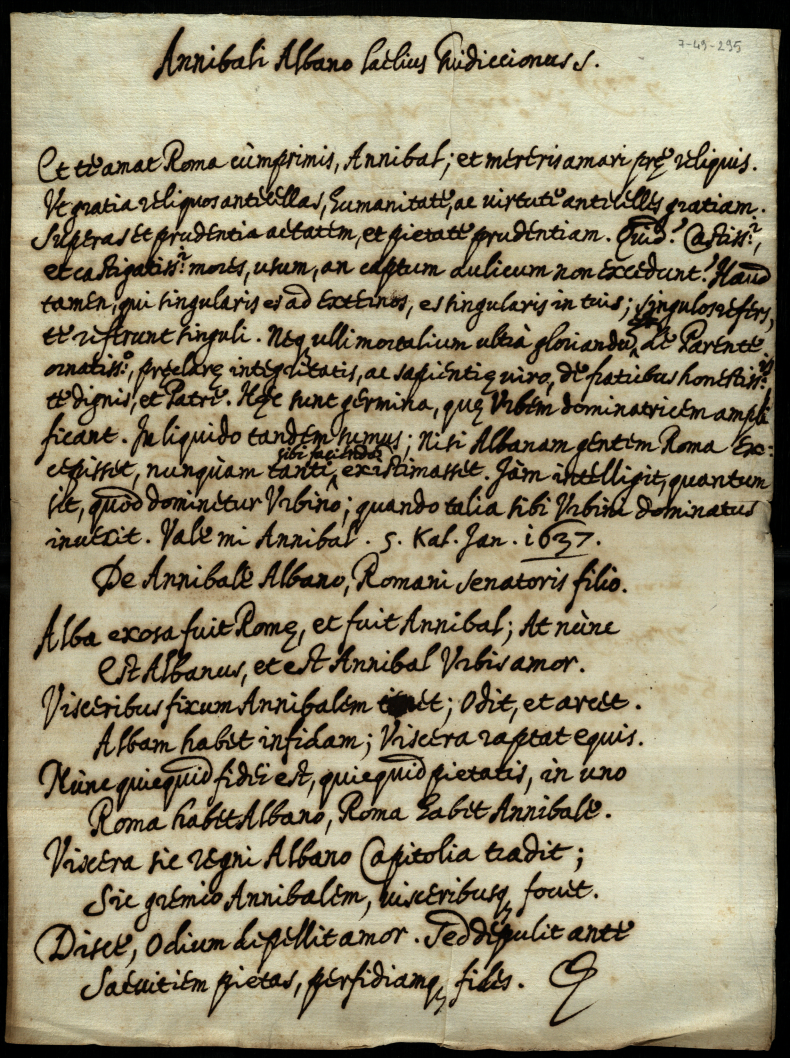 7-49-295
Annibali Albano Laelius Guidiccionus s.
Et te amat Roma cùmprimis, Annibal; et mereris amari prę reliquis.
Ut gratia reliquos antecellas, humanitate, ac virtute antecellis gratiam.
Superas et prudentia aetatem, et pietate prudentiam. Quid? Castiss.ᵢ,
et castigatiss.ᵢ mores, usum, an captum aulicum non excedunt? Haud
tamen; qui singularis es ad exteros, es singularis in tuis; singulos refers,
te referunt singuli. Neq ulli mortalium ultrà gloriandũ, de Parente
ornatiss.º, pręclarę integritatis, ac sapientię viro, de fratribus honestiss.is
te dignis, et Patre. Hęc sunt germina, quę Urbem dominatricem ampli
ficant. In liquido tandem sumus; nisi Albanam gentem Roma ex-
cepisset, nunquam tanti sibi faciendã existimasset. Jàm intelligit, quantum
sit, quod dominetur Urbino; quando talia sibi Urbini dominatus
inuexit. Vale mi Annibal. 5. Kal. Jan. 1637.
De Annibale Albano, Romani senatoris filio.
Alba exosa fuit Romę, et fuit Annibal; At nùnc
Est Albanus, et est Annibal Urbis amor.
Visceribus fixum Annibalem; Odit, et arcet.
Albam habet infidam; Viscera raptat equis.
Nùnc quicquid fidei est, quicquid pietatis, in uno
Roma habet Albano, Roma habet Annibale.
Viscera sic regni Albano Capitolia tradit;
Sic gremio Annibalem, visceribusq, fouet.
Disce, Odium depellit amor. Sed depulit ante
Saeuitiem pietas, perfidiamq, fides.